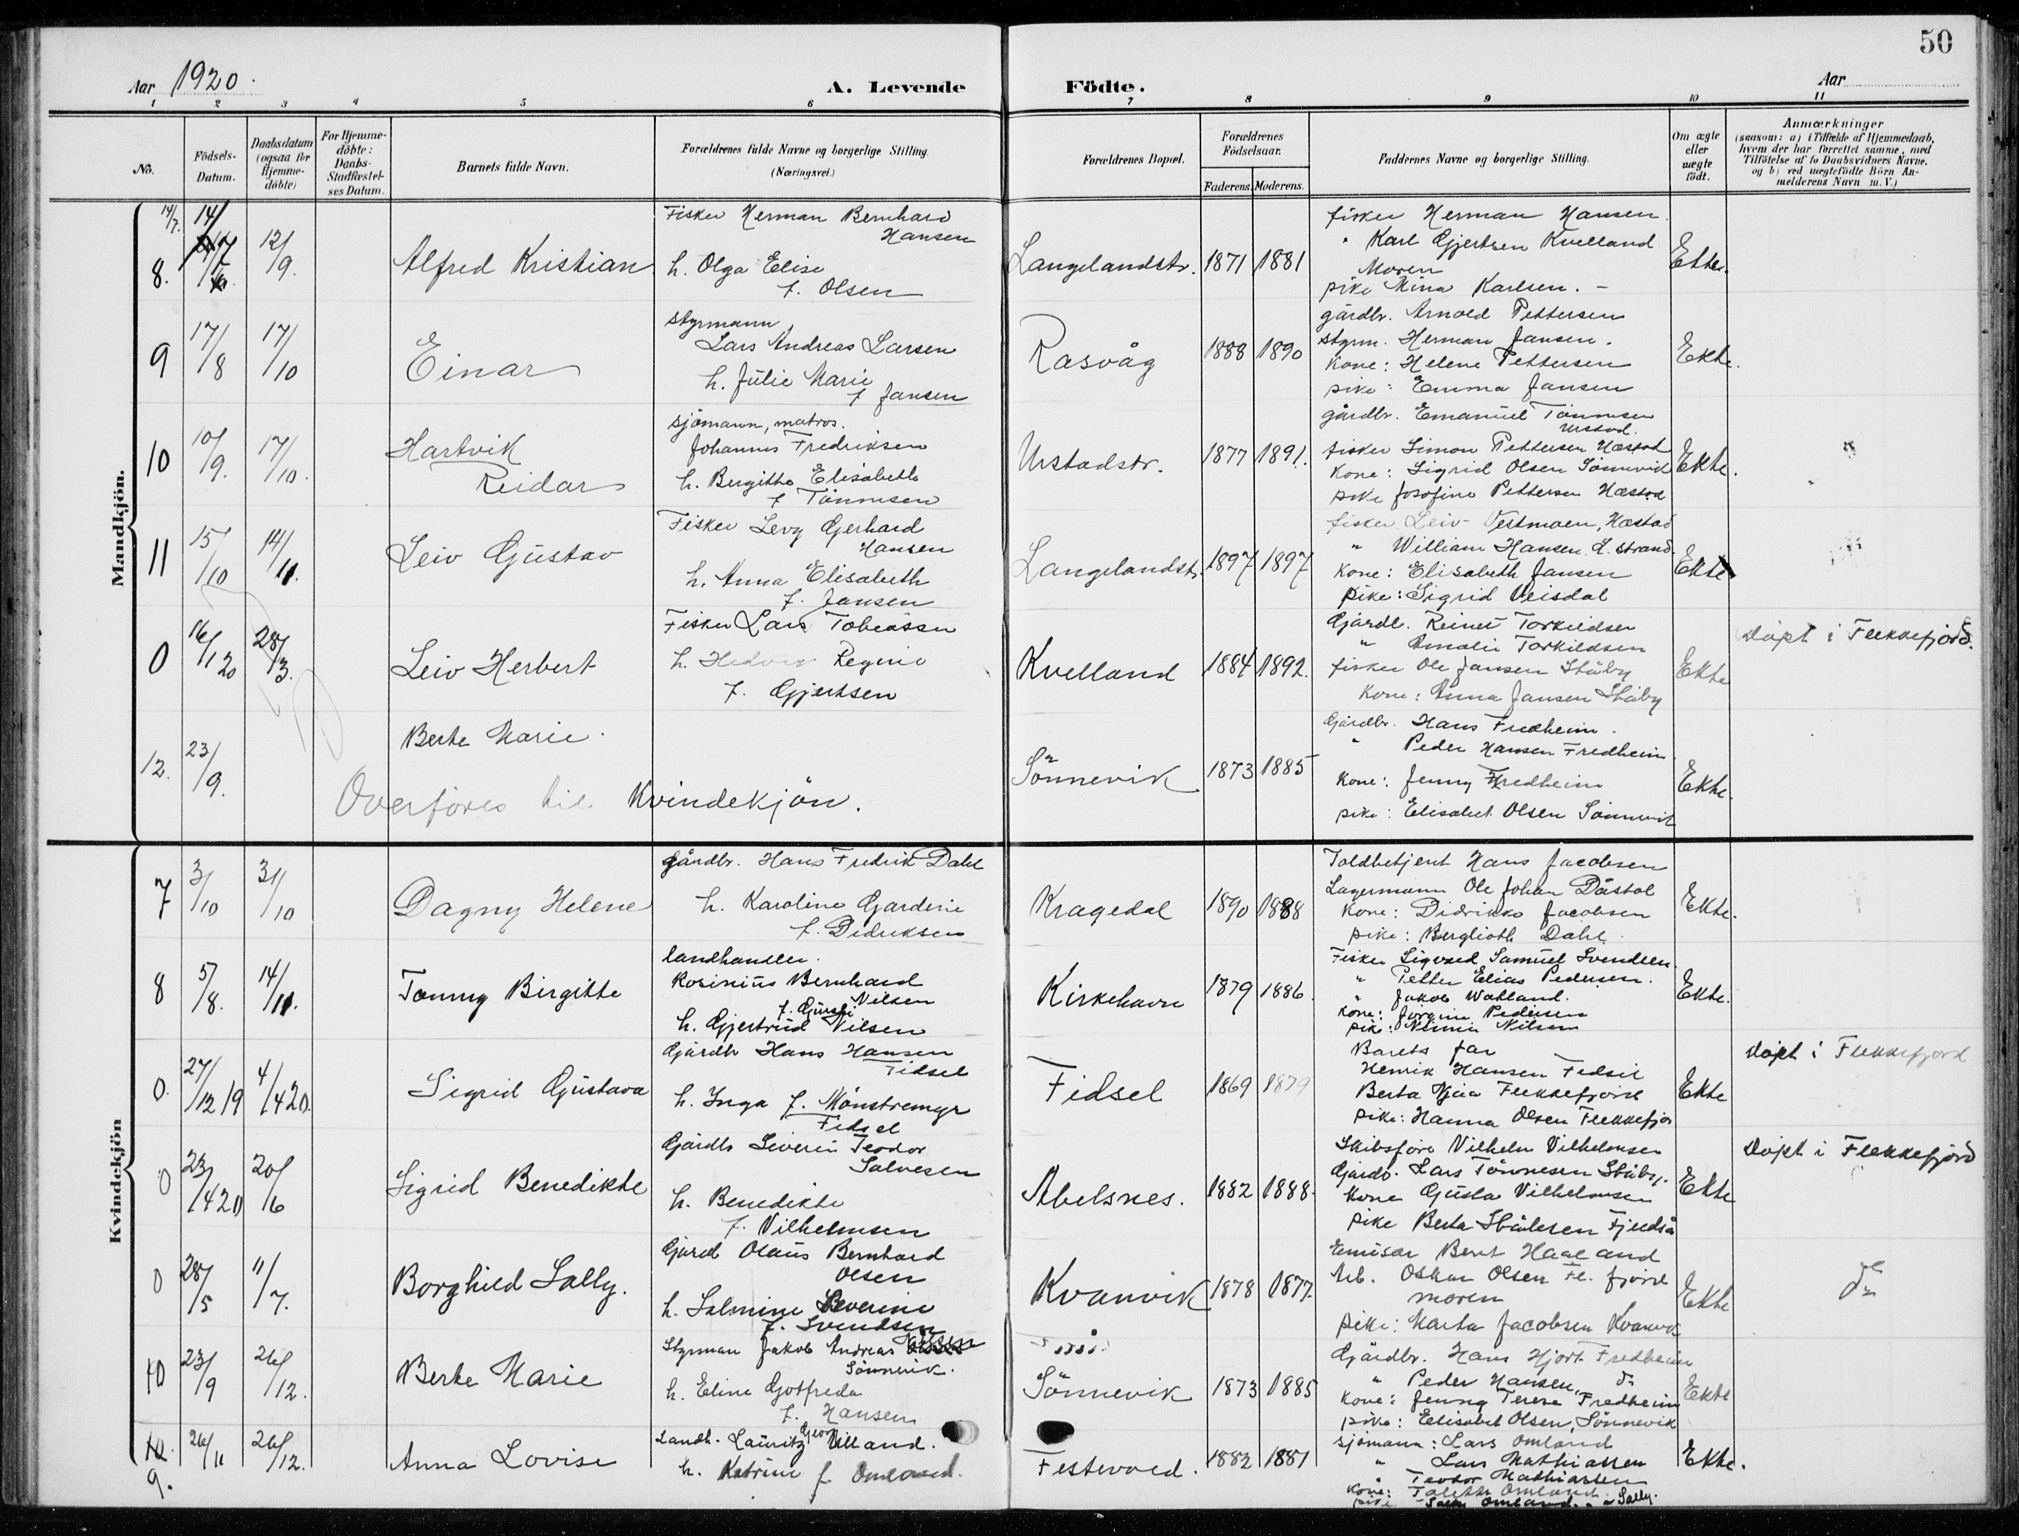 50
Aar 1920.
A. Levende Födte.
Aar
1 2 3 4 5 6 7 8 9 10 11
No.
Födsels-Datum.
Daabsdatum (ogsaa for Hjemme-döbte)
For Hjemme-döbte: Daabs-Stadfæstel-ses Datum.
Barnets fulde Navn.
Forældrenes fulde Navne og borgerlige Stilling. (Næringsvei.)
Forældrenes Bopæl.
Forældrenes Födselsaar.
Faderens. Moderens.
Faddernes Navne og borgerlige Stilling.
Om ægte eller uægte födt.
Anmærkninger
(saasom: a) i Tilfælde af Hjemmedaab,
hvem der har forrettet samme, med
Tilföielse af to Daabsvidners Navne,
og b) ved uægtefödte Börn An-
melderens Navn m. V.)
Mandkjön.
14/7.
8. 14/7 12/9 Alfred Kristian
Fisker Herman Bernhard
Hansen
h. Olga Elise
f. Olsen
Langelandstr. 1871 1881
fisker Herman Hansen.
" Karl Gjertsen Kvelland
Moren
pike Mina Karlsen. –
Ekte.
9 17/8 17/10 Einar
styrmann
Lars Andreas Larsen
h. Julie Marie
f Jansen
Rasvåg 1888 1890
gårdbr. Arnold Pettersen
styrm. Herman Jansen.
Kone: Helene Pettersen
pike: Emma Jansen
Ekte.
10 10/9. 17/10. Hartvik
Reidar
sjömann, matros.
Johannes Fredriksen
h. Bergitte Elisabeth
f Tönnesen
Urstadstr. 1877 1891.
gårdbr. Emanuel Tönnesen
Urstad.
fisker Simon Pettersen Næstad
Kone: Sigrid Olsen Sönnevik
pike Josefine Pettersen Næstad
Ekte.
11 15/10 14/11. Leiv Gustav
Fisker Levy Gerhard
Hansen
h. Anna Elisabeth
f. Jansen
Langelandstr. 1897 1897
fisker Leiv Vestmoen, Næstad
" William Hansen L. strand.
Kone: Elisabeth Jansen
pike: Sigrid Veisdal
Ekte
0 16/1 20 28/3. Leiv Herbert
Fisker Lars Tobiassen
h. Hedvig Regine
f. Gjertsen
Kvelland 1884 1892.
Gårdb. Reinert Torkildsen
" Amalie Torkildsen
fisker Ole Jansen Ståby
Kone: Anna Jansen Ståby
Ekte
Döpt i Flekkefjord.
12. 23/9. Berte Marie.
Overföres til Kvindekjön.
Sönnevik 1873 1885
Gårdbr. Hans Fredheim.
" Peder Hansen Fredheim
Kone: Jenny Fredheim
pike: Elisabet Olsen Sönnevik
Ekte.
Kvindekjön
7 3/10 31/10 Dagny Helene
gårdbr. Hans Fredrik Dahl
h. Karoline Gardine
f. Didriksen
Kragedal 1890 1888
Toldbetjent Hans Jacobsen
Lagermann Ole Johan Dåstöl
Kone: Didrikke Jacobsen
pike: Berglioth Dahl.
Ekte.
8 5/8. 14/11. Tommy Birgitte
landhandler.
Rosinius Bernhard
Nilsen
h. Gjertrud Nilsen
Kirkehavn 1879 1886.
Fisker Sigvard Samuel Svendsen.
" Petter Elias Pedersen.
" Jakob Watland.
Kone: Jorgine Pedersen
pike: Nilsen
Ekte.
0. 27/12 19 4/4 20. Sigrid Gustava
Gårdb Hans Hansen
Fidsel
h. Inga f. Mönstremyr
Fidsel
Fidsel 1869 1879
Barets far
Henrik Hansen Fidsel
Berta Flekkefjord
pike: Hanna Olsen Flekkefjor
Ekte
Döpt i Flekkefjord
0 23/4 20 20/6 Sigrid Benedikte
Gårdb Severin Teodor
Salvesen
h. Benedikte
f. Vilhelmsen
Abelsnes. 1882 1888.
Skibsförer Vilhelm Vilhelmsen
Gårdb. Lars Tönnesen Ståby.
Kone Gusta Vilhelmsen
pike Berta Fjeldså
Ekte
Döpt i Flekkefjord
0 28/5 11/7. Borghild Sally.
Gårdb Olaus Bernhard
Olsen
h. Salmine Severine
f. Svendsen
Kvanvik 1878 1877.
Emisær Bernt Haaland
Arb. Oskar Olsen Fl. fjord
moren
pike: Marta Jacobsen Kvanvik
Ekte
do
10 23/9 26/12. Berte Marie
Styrman Jakob Andreas Olsen
Sönnevik.
h. Eline Gotfreda
f. Hansen
Sönnevik 1873 1885
Gårdbr. Hans Hjort Fredheim
" Peder Hansen, do
Kone: Jenny Terese Fredheim
pike: Elisabet Olsen, Sönnevik
Ekte
9. 26/11 26/12. Anna Lovise
Landh. Lauritz Georg Villand.
h. Katrine f Omland.
Festevold. 1882 1881
sjömann: Lars Omland
" Lars Mathiassen
" Teodor Mathiassen
Kone: Talette Omland
pike Sally Omland
Ekte.